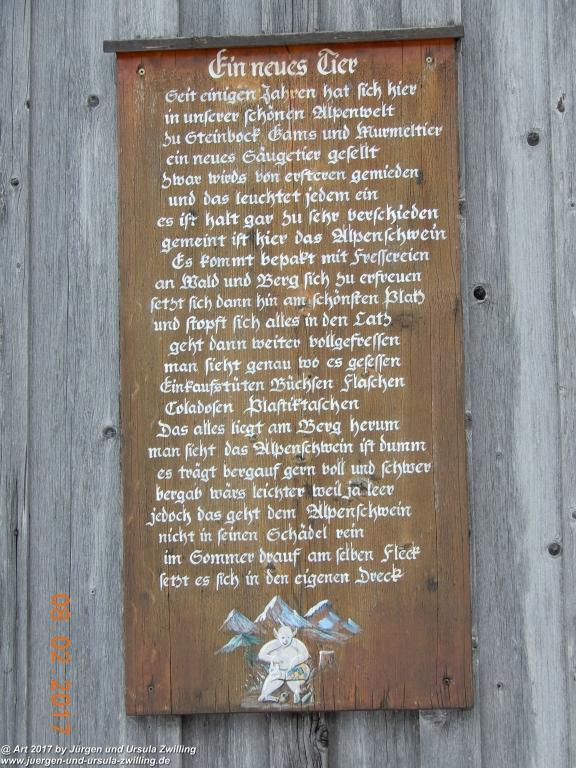 Ein neues Tier
Seit einigen Jahren hat sich hier
in unserer schönen Alpenwelt
zu Steinbock Gams und Murmeltier
ein neues Säugetier gesellt
zwar wirds von ersteren gemieden
und das leuchtet jedem ein
es ist halt gar zu sehr verschieden
gemeint ist hier das Alpenschwein
Es kommt bepakt mit Fressereien
an Wald und Berg sich zu erfreuen
setzt sich dann hin am schönsten Platz
und stopft sich alles in den Latz
geht dann weiter vollgefressen
man sieht genau wo es gesessen
Einkaufstüten Büchsen Flaschen
Coladosen Plastiktaschen
Das alles liegt am Berg herum
man sieht das Alpenschwein ist dumm
es trägt bergauf gern voll und schwer
bergab wärs leichter weil ja leer
jedoch das geht dem Alpenschwein
nicht in seinen Schädel rein
im Sommer drauf am selben Fleck
setzt es sich in den eigenen Dreck
08 02 2017
@ Art 2017 by Jürgen und Ursula Zwilling
www.juergen-und-ursula-zwilling.de